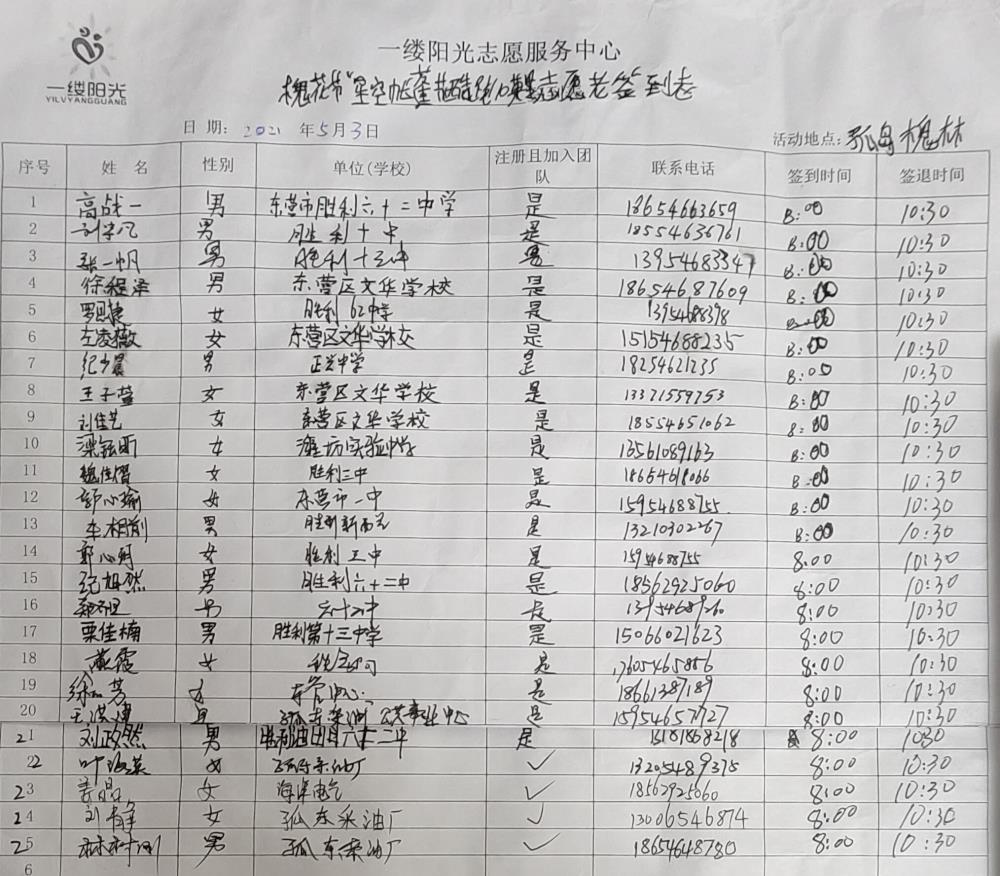 一缕阳光
YILVYANGGUANG
一缕阳光志愿服务中心
槐花节"星空帐篷 志愿者签到表
日 期: 2021 年 5 月 3 日 活动地点: 孤岛槐林
序号 姓 名 性别 单位(学校) 注册且加入团队 联系电话 签到时间 签退时间
1 高战一 男 东营市胜利六十二中学 是 18654663659 8:00 10:30
2 男 胜利十中 是 18554636761 8:00 10:30
3 张一帆 男 胜利十三中 男 13954683347 8:00 10:30
4 徐程泽 男 东营区文华学校 是 18654687609 8:00 10:30
5 女 胜利62中学 是 13954688398 8:00 10:30
6 左凌薇 女 东营区文华学校 是 15154688235 8:00 10:30
7 纪少晨 男 正兴中学 是 18254621235 8:00 10:30
8 王子莹 女 东营区文华学校 是 13371559753 8:00 10:30
9 刘佳艺 女 东营区文华学校 是 18554651062 8:00 10:30
10 女 潍坊实验中学 是 13561089163 8:00 10:30
11 女 胜利三中 是 18654618066 8:00 10:30
12 郭心瑜 女 东营市一中 是 15954688755 8:00 10:30
13 李相前 男 是 13210302267 8:00 10:30
14 女 胜利三中 是 15954688755 8:00 10:30
15 纪旭然 男 胜利六十二中 是 18562925060 8:00 10:30
16 男 六十二中 是 13954689260 8:00 10:30
17 栗佳楠 男 胜利第十三中学 是 15066021623 8:00 10:30
18 霞 女 是 13605465856 8:00 10:30
19 芳 女 中心 是 18661387189 8:00 10:30
20 王洪建 男 孤东采油厂 公共事业中心 是 15954657727 8:00 10:30
21 刘政然 男 胜利油田第六十二中 是 15181868218 8:00 10:30
22 叶海英 女 采油厂 ✓ 13205489375 8:00 10:30
23 姜晶 女 海洋电气 ✓ 18562925060 8:00 10:30
24 刘静 女 孤东采油厂 ✓ 13006546874 8:00 10:30
25 林树刚 男 孤东采油厂 ✓ 18654648780 8:00 10:30
6